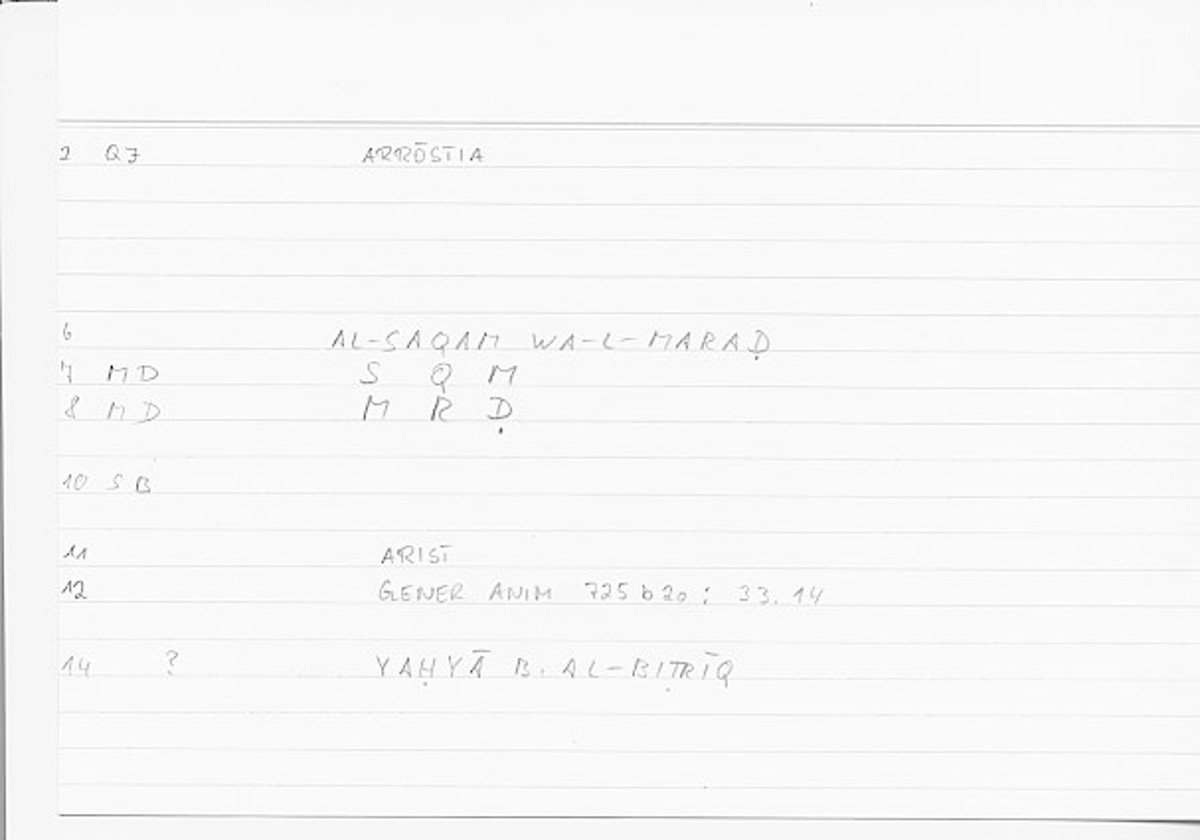 2 QZ ARRŌSTIA
6 AL-SAQAM WA-L-MARAḌ
7 MD S Q M
8 MD M R Ḍ
10 SB
11 ARIST
12 GENER ANIM 725 b 20 : 33.14
14 ? YAḤYĀ B. AL-BIṬRĪQ